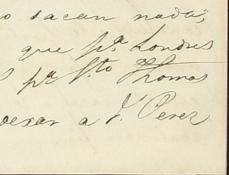 o sacan nada,
que pª Londres
pª Sto Thomas
pesar a J. Perez